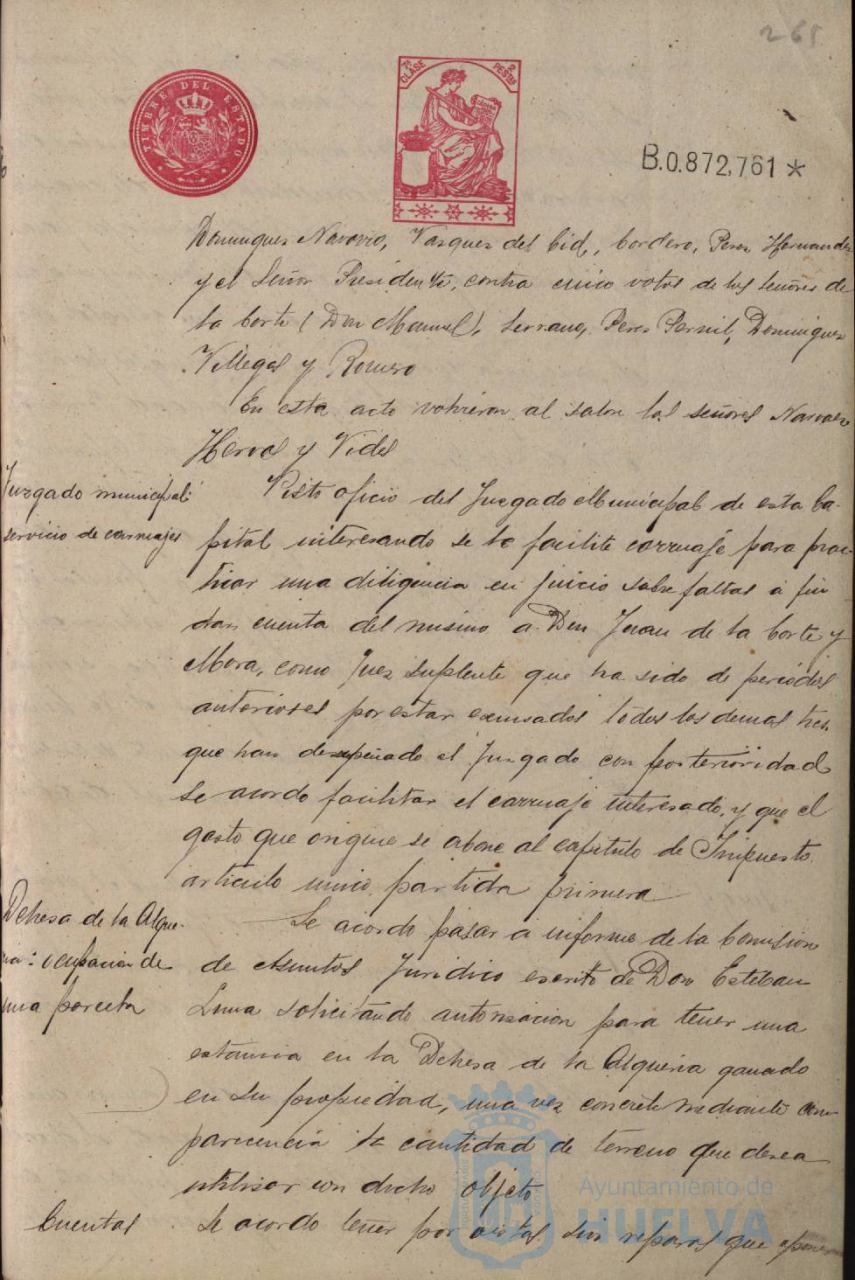 265
TIMBRE DEL ESTADO
7ª CLASE 2 PESTAS
B.0.872,761 *
Dominguez Navarro, Vazquez del Cid, Cordero, Perez Hernandez
y el Señor Presidente, contra cinco votos de los señores de
la Corte (Don Manuel), Serrano, Perez Pernil, Dominguez
Villegas y Romero
En este acto volvieron al salon los señores Narvaez
Hervas y Vides
Juzgado municipal
servicio de carruajes
Visto oficio del Juzgado Municipal de esta Ca-
pital interesando se le facilite carruaje para prac-
ticar una diligencia en juicio sobre faltas á fin
dan cuenta del mismo a Don Juan de la Corte y
Mora, como Juez suplente que ha sido de periodos
anteriores por estar excusados todos los demas
que han desepeñado el Juzgado con posterioridad
se acordo facilitar el carruaje interesado, y que el
gasto que origine se abone al capitulo de
articulo unico partida primera
Dehesa de la Alque-
ria: ocupacion de
una parcela
Se acordo pasar á informe de la Comision
de Asuntos Juridico escrito de Don Esteban
Luna solicitando autorizacion para tener una
estancia en la Dehesa de la Alqueria ganado
en su propiedad, una vez concrete mediante com-
parecencia la cantidad de terreno que desea
utilizar con dicho objeto
Cuentas
Se acordo tener por vistas sin reparos que oponer
Ayuntamiento de
HUELVA